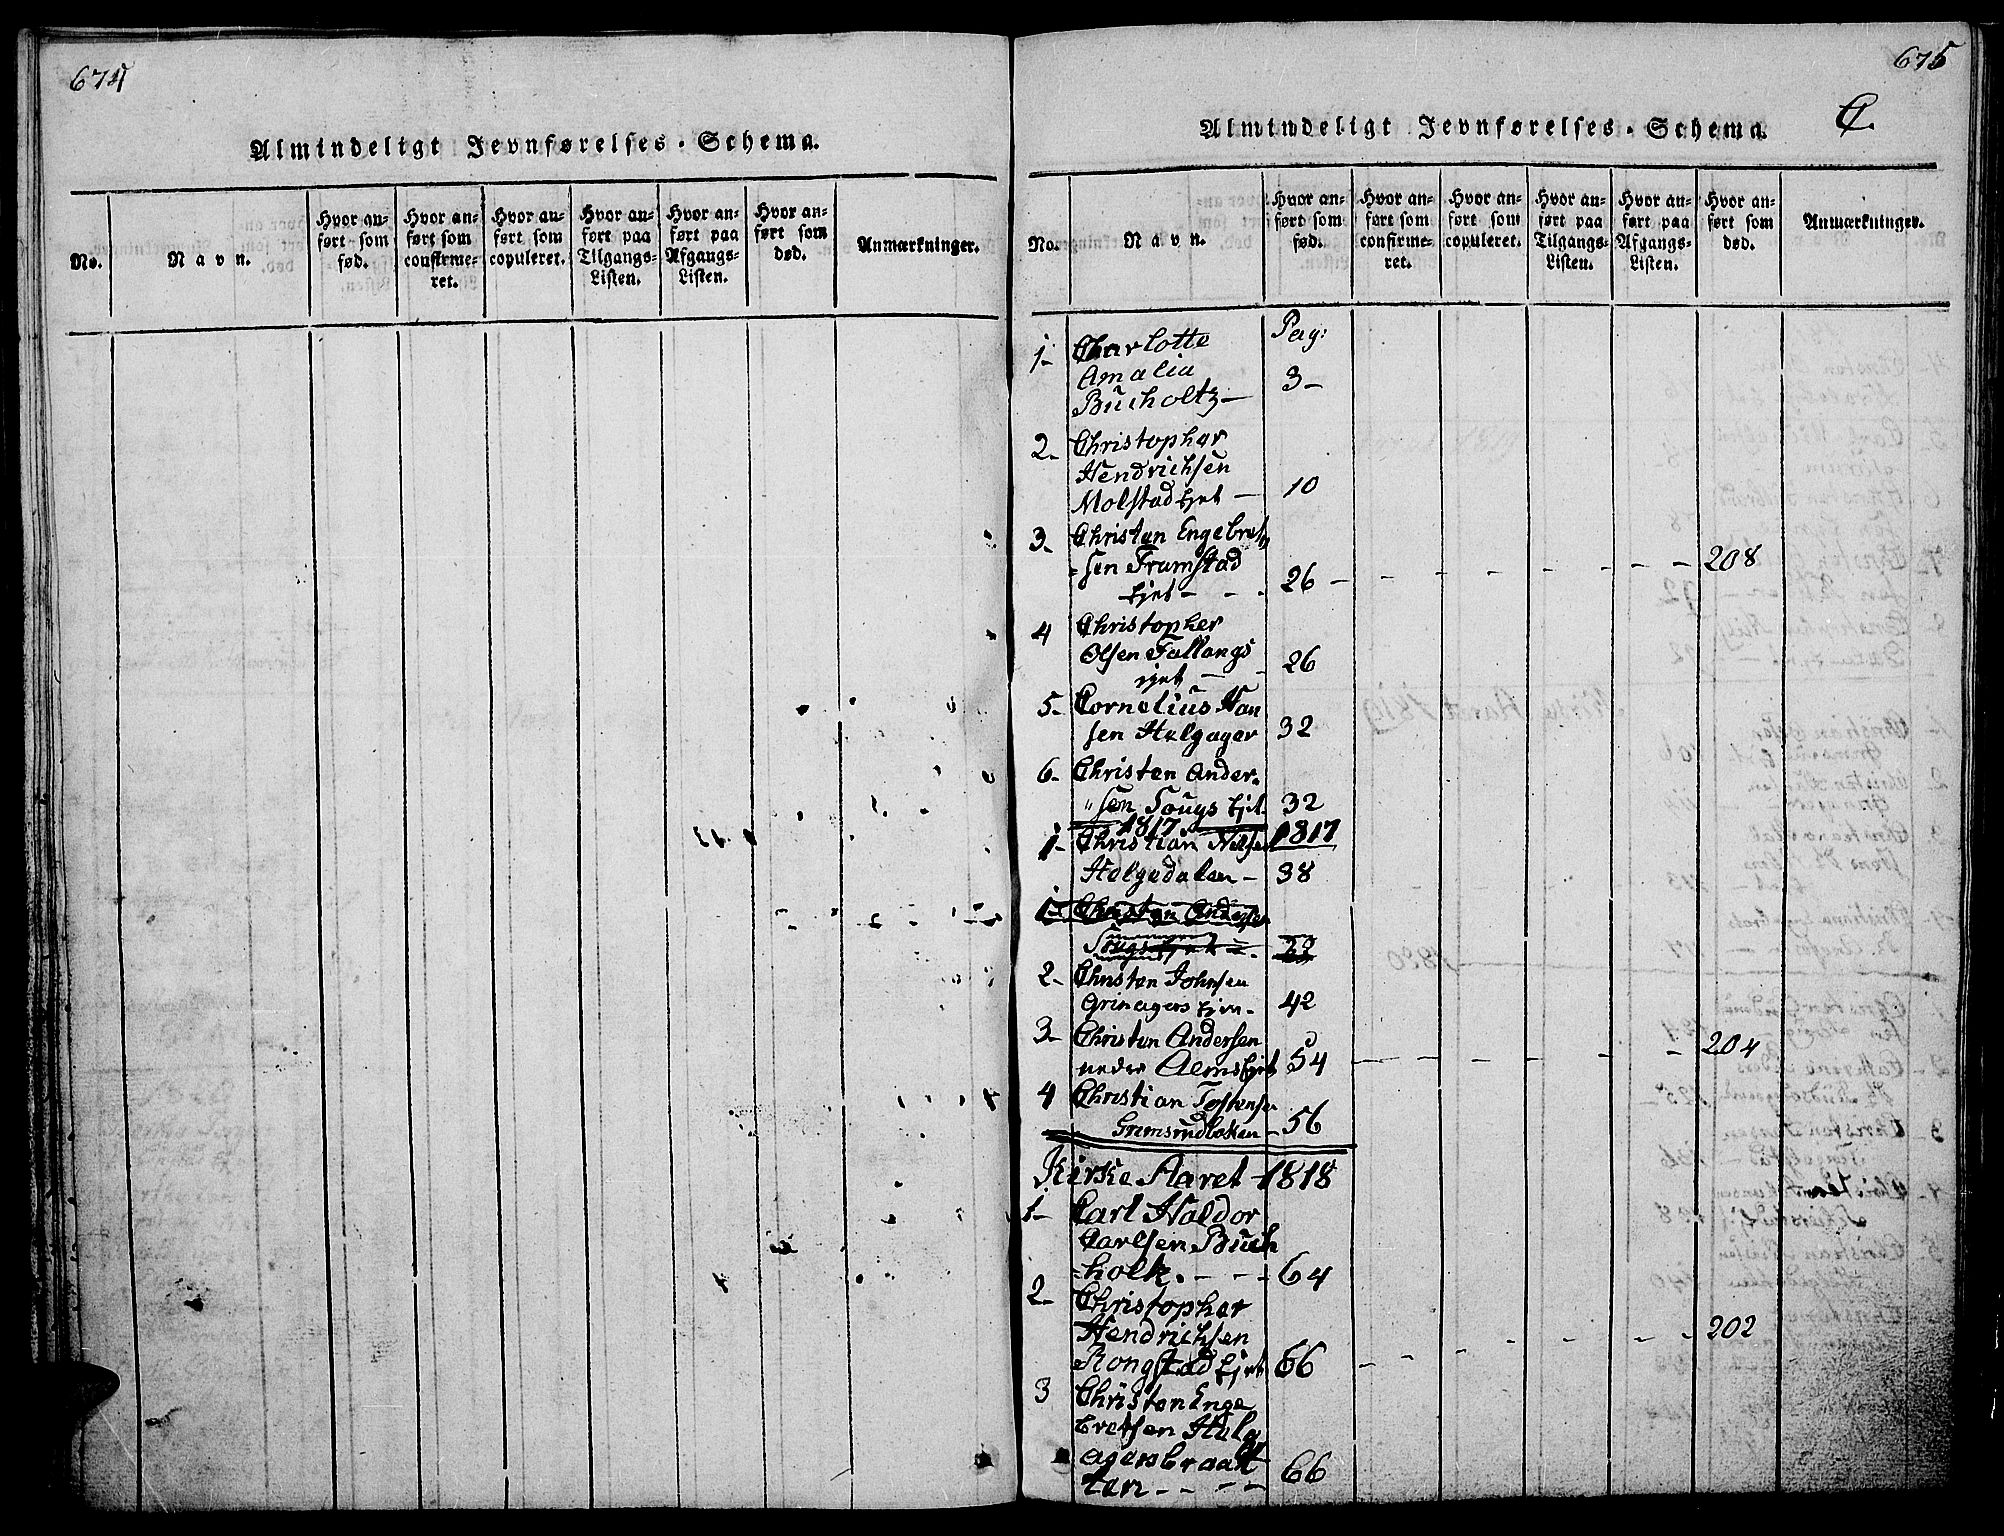 674
Almindeligt Jevnførelses-Schema.
No.
Navn.
Hvor an-
ført som
fød.
Hvor an-
ført som
confirme-
ret.
Hvor an-
ført som
copuleret.
Hvor an-
ført paa
Tilgangs-
Listen.
Hvor an-
ført paa
Afgangs-
Listen.
Hvor an-
ført som
død.
Anmærkninger.
675
Almindeligt Jevnførelses-Schema.
C.
No.
Navn.
Hvor an-
ført som
fød.
Hvor an-
ført som
confirme-
ret.
Hvor an-
ført som
copuleret.
Hvor an-
ført paa
Tilgangs-
Listen.
Hvor an-
ført paa
Afgangs-
Listen.
Hvor an-
ført som
død.
Anmærkninger.
Pag:
1- Charlotte
Amalia
Bucholtz- 3-
2- Christopher
Hendrichsen
Molstadejet - 10
3- Christen Engebret
=sen Framstad
ejet - - - 26 - - - - - - 208
4 Christopher
Olsen Fallangs
ejet - - 26
5- Cornelius Han
sen Helgager 32
6- Christen Ander
"sen Sougs Ejet 32
1817 1817
1- Christian Nilsen
Helgedalen - 38
1- Christen Andersen
Sougs
2- Christen Johnsen
Grinagers Ejen- 42
3- Christen Andersen
nedre Alms Ejet 54 - - - - - 204
4 Christian Tostensen
Grimsrudbaken - 56
Kirke Aaret 1818
1- Carl Haldor
Carlsen Buch
=holt. - - - 64
2- Christopher
Hendrichsen
Rongstad Ejet 66 - - - - - - 202
3 Christen Enge
bretsen Helg
agersbraat
ten - - - - 66